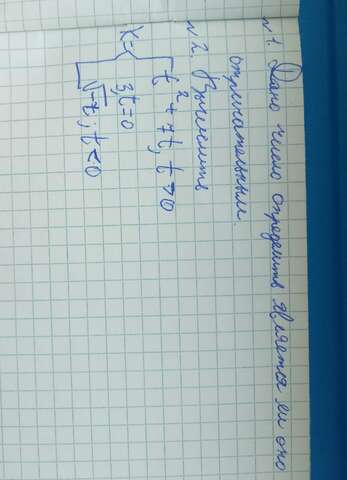 №1. Дано число определить является ли оно
отрицательным.
№2. Вычислить
x = { t² + 7t, t > 0
3, t = 0
√-t, t < 0